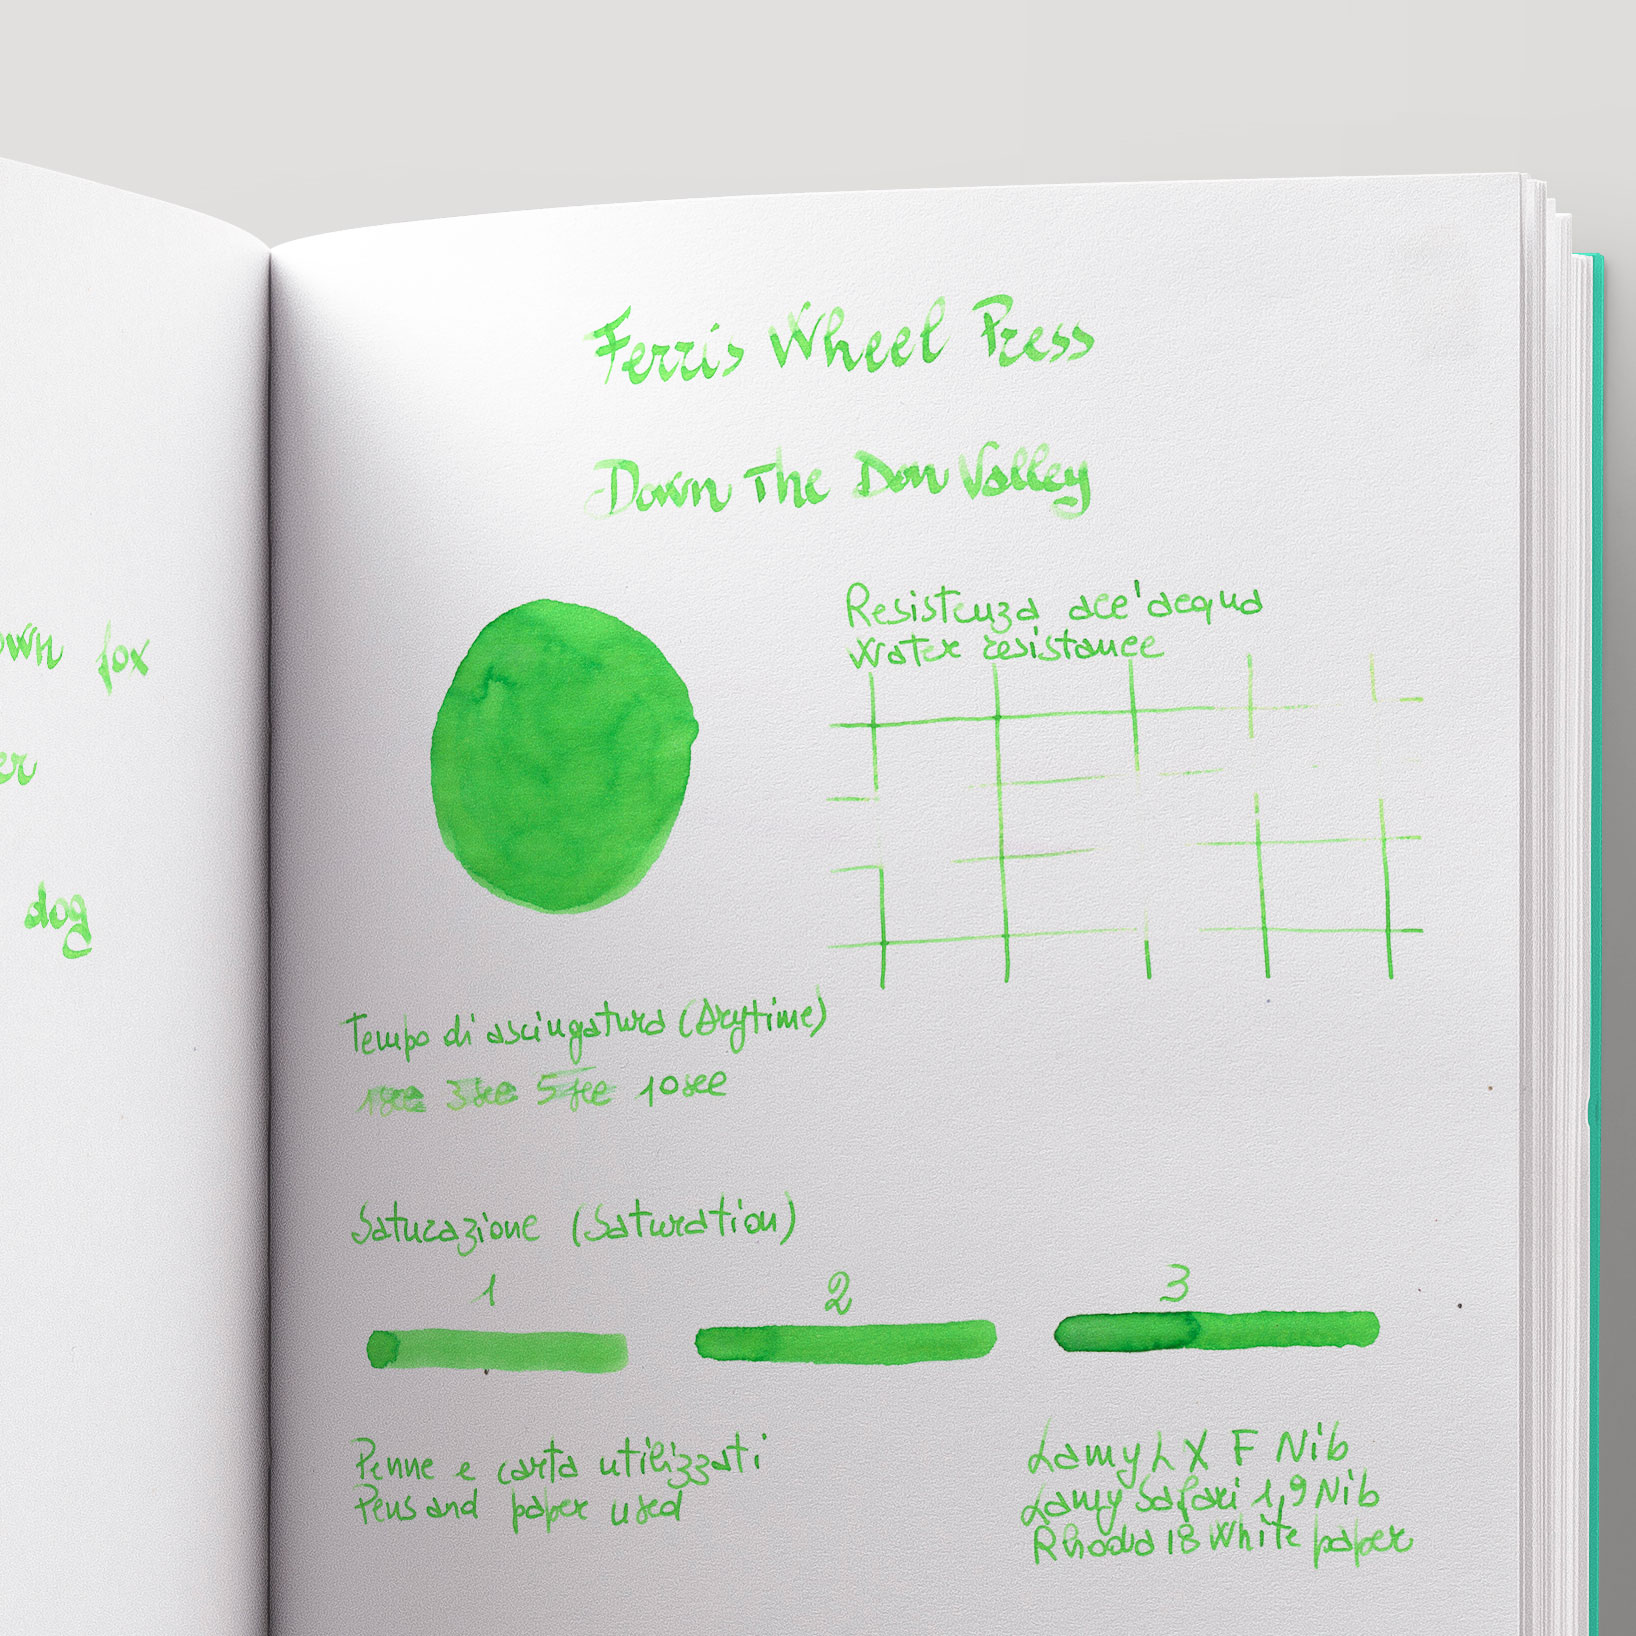 own fox
er
dog
Ferris Wheel Press
Down The Don Valley
Resistenza all'acqua
Water resistance
Tempo di asciugatura (Drytime)
1sec 3sec 5sec 10sec
Saturazione (Saturation)
1 2 3
Penne e carta utilizzati
Pens and paper used
Lamy LX F Nib
Lamy Safari 1,9 Nib
Rhodia 18 White paper